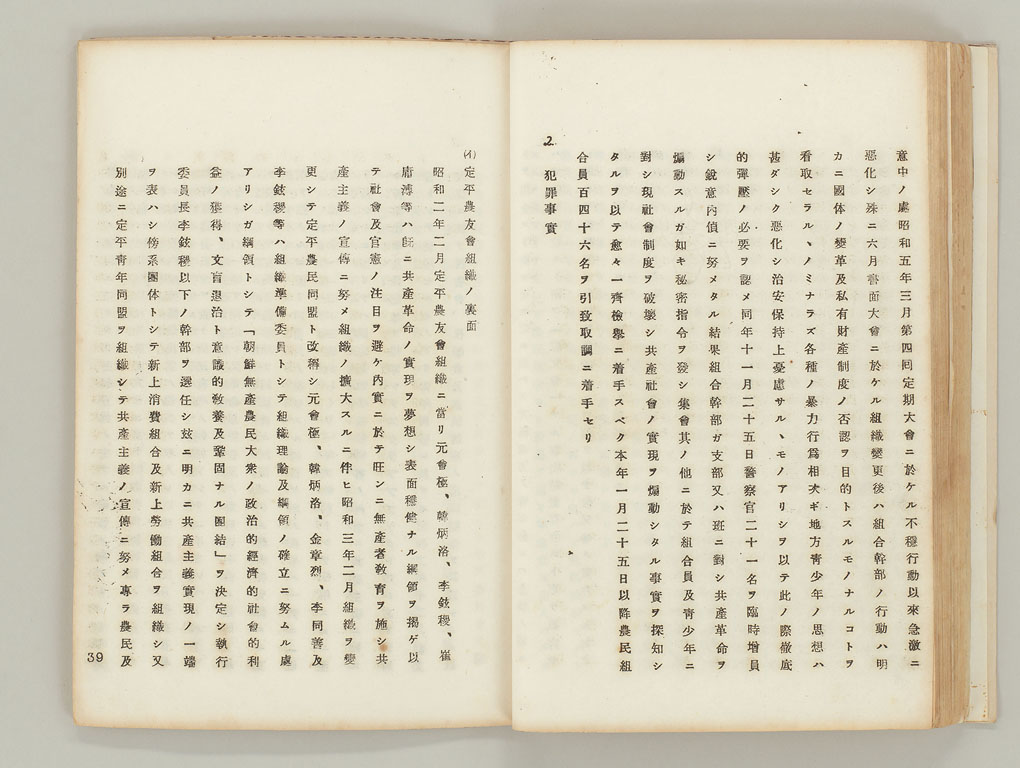 意中ノ處昭和五年三月第四回定期大會ニ於ケル不穩行動以來急激ニ
惡化シ殊ニ六月書面大會ニ於ケル組織變更後ハ組合幹部ノ行動ハ明
カニ國体ノ變革及私有財產制度ノ否認ヲ目的トスルモノナルコトヲ
看取セラルヽノミナラズ各種ノ暴力行爲相次ギ地方靑少年ノ思想ハ
甚ダシク惡化シ治安保持上憂慮サルヽモノアリシヲ以テ此ノ際徹底
的彈壓ノ必要ヲ認メ同年十一月二十五日警察官二十一名ヲ臨時增員
シ銳意內偵ニ努メタル結果組合幹部ガ支部又ハ班ニ對シ共產革命ヲ
煽動スルガ如キ秘密指令ヲ發シ集會其ノ他ニ於テ組合員及靑少年ニ
對シ現社會制度ヲ破壞シ共產社會ノ實現ヲ煽動シタル事實ヲ探知シ
タルヲ以テ愈々一齊檢擧ニ着手スベク本年一月二十五日以降農民組
合員百四十六名ヲ引致取調ニ着手セリ
2 犯罪事實
(イ)定平農友會組織ノ裏面
昭和二年二月定平農友會組織ニ當リ元會極、韓炳洛、李鉉稷、崔
庸溥等ハ旣ニ共產革命ノ實現ヲ夢想シ表面穩健ナル綱領ヲ揭ゲ以
テ社會及官憲ノ注目ヲ避ケ內實ニ於テ旺ンニ無產者敎育ヲ施シ共
產主義ノ宣傳ニ努メ組織ノ擴大スルニ伴ヒ昭和三年二月組織ヲ變
更シテ定平農民同盟ト改稱シ元會極、韓炳洛、金章烈、李同善及
李鉉稷等ハ組織準備委員トシテ組織理論及綱領ノ確立ニ努ムル處
アリシガ綱領トシテ「朝鮮無產農民大衆ノ政治的經濟的社會的利
益ノ獲得、文盲退治ト意識的敎養及鞏固ナル團結」ヲ決定シ執行
委員長李鉉稷以下ノ幹部ヲ選任シ玆ニ明カニ共產主義實現ノ一端
ヲ表ハシ傍系團体トシテ新上消費組合及新上勞働組合ヲ組織シ又
別途ニ定平靑年同盟ヲ組織シテ共產主義ノ宣傳ニ努メ專ラ農民及
39